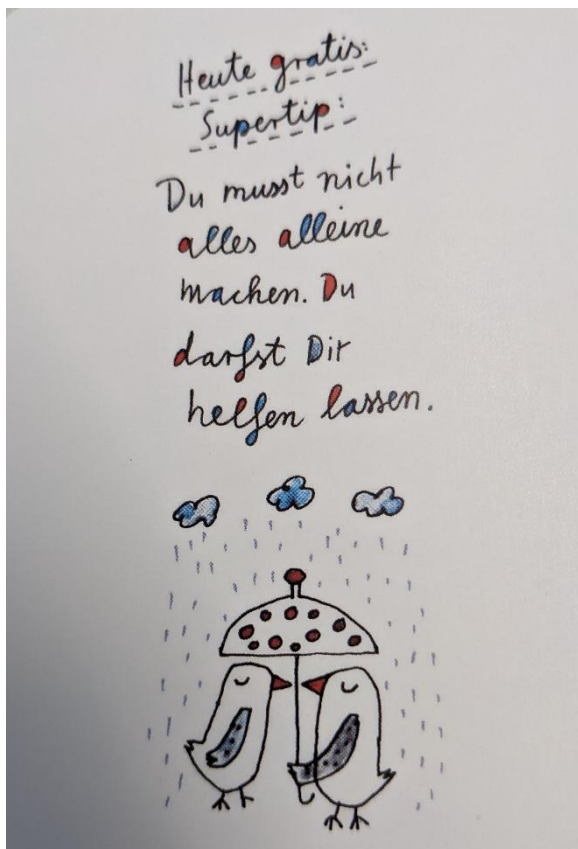 Heute gratis:
Supertip:
Du musst nicht
alles alleine
machen. Du
darfst Dir
helfen lassen.